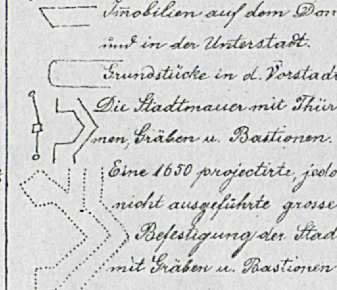 Imobilien auf dem Dom
und in der Unterstadt.
Grundstücke in d. Vorstadt
Die Stadtmauer mit Thür
men, Gräben u. Bastionen.
Eine 1650 projectirte, jedo
nicht ausgeführte grosse
Befestigung der Stad
mit Gräben u. Bastionen